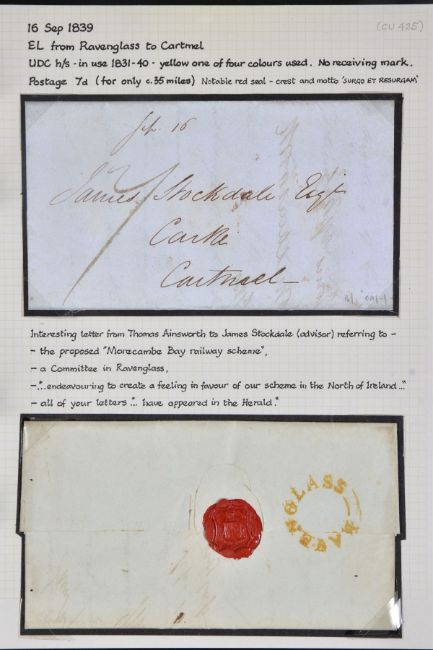 16 Sep 1839
(CU 425)
EL from Ravenglass to Cartmel
UDC h/s - in use 1831-40 - yellow one of four colours used. No receiving mark.
Postage 7d (for only c.35 miles) Notable red seal - crest and motto 'SURGO ET RESURGAM'
16
7
James Stockdale Esqr
Carke
Cartmel
Interesting letter from Thomas Ainsworth to James Stockdale (advisor) referring to -
- the proposed "Morecambe Bay railway scheme",
- a Committee in Ravenglass,
- "..endeavouring to create a feeling in favour of our scheme in the North of Ireland..."
- all of your letters ".. have appeared in the Herald."
RAVENGLASS